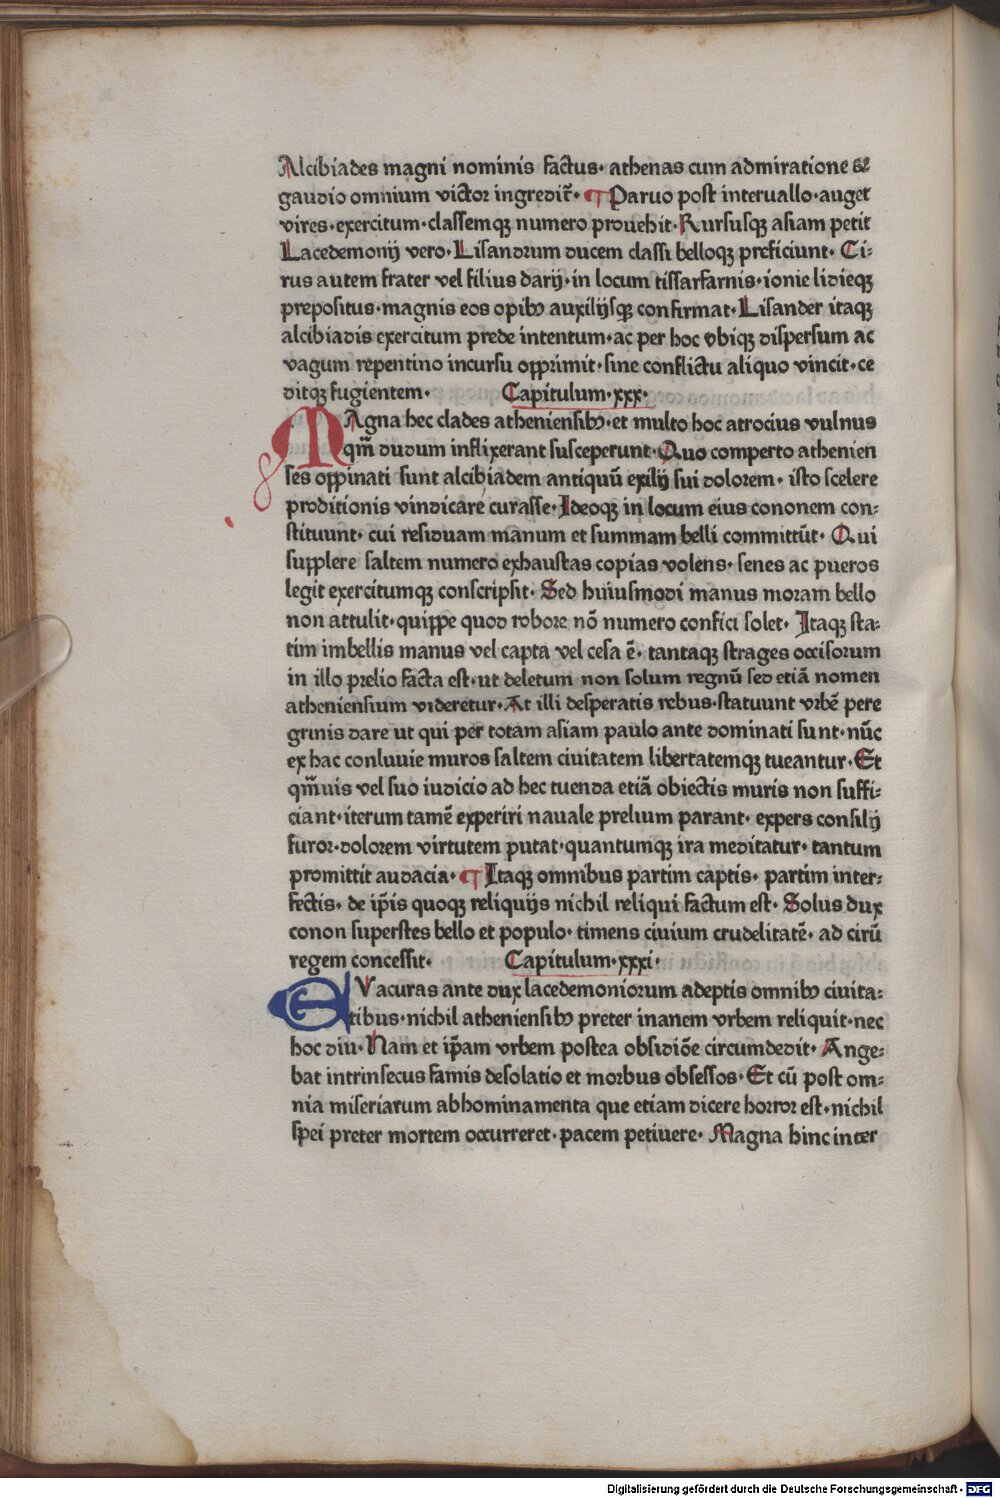 Alcibiades magni nominis factus· athenas cum admiratione &
gaudio omnium victor ingredit̃· ¶ Paruo post interuallo·auget
vires·exercitum·classemqꝫ numero prouehit·Rursusqꝫ asiam petit
Lacedemonij vero·Lisandrum ducem classi belloqꝫ preficiunt· Ci⸗
rus autem frater vel filius darij·in locum tissarfarnis·ionie lidieqꝫ
prepositus·magnis eos opibꝰ auxilijsqꝫ confirmat·Lisander itaqꝫ
alcibiadis exercitum prede intentum·ac per hoc vbiqꝫ dispersum ac
vagum repentino incursu opprimit·sine conflictu aliquo vincit·ce
ditqꝫ fugientem· Capitulum·xxx·
MAgna hec clades atheniensibꝰ·et multo hoc atrocius vulnus
qm̃ dudum inflixerant susceperunt·Quo comperto athenien
ses oppinati sunt alcibiadem antiquũ exilij sui dolorem· isto scelere
proditionis vindicare curasse·Ideoqꝫ in locum eius cononem con⸗
stituunt· cui residuam manum et summam belli committũt· Qui
supplere saltem numero exhaustas copias volens· senes ac pueros
legit exercitumqꝫ conscripsit· Sed huiusmodi manus moram bello
non attulit·quippe quod robore nõ numero confici solet· Itaqꝫ sta⸗
tim imbellis manus vel capta vel cesa ẽ· tantaqꝫ strages occisorum
in illo prelio facta est·ut deletum non solum regnũ sed etiã nomen
atheniensium videretur·At illi desperatis rebus·statuunt vrbẽ pere
grinis dare ut qui per totam asiam paulo ante dominati sunt·nũc
ex hac conluuie muros saltem ciuitatem libertatemqꝫ tueantur·Et
qm̃uis vel suo iudicio ad hec tuenda etiã obiectis muris non suffi⸗
ciant·iterum tamẽ experiri nauale prelium parant· expers consilij
furor·dolorem virtutem putat·quantumqꝫ ira meditatur· tantum
promittit audacia· ¶ Itaqꝫ omnibus partim captis· partim inter⸗
fectis· de ip̃is quoqꝫ reliquijs nichil reliqui factum est· Solus dux
conon superstes bello et populo· timens ciuium crudelitatẽ· ad cirũ
regem concessit· Capitulum·xxxi·
EVacuras ante dux lacedemoniorum adeptis omnibꝰ ciuita⸗
tibus·nichil atheniensibꝰ preter inanem vrbem reliquit·nec
hoc diu·Nam et ip̃am vrbem postea obsidiõe circumdedit· Ange⸗
bat intrinsecus famis desolatio et morbus obsessos·Et cũ post om⸗
nia miseriarum abhominamenta que etiam dicere horror est·nichil
spei preter mortem occurreret·pacem petiuere· Magna hinc inter
Digitalisierung gefördert durch die Deutsche Forschungsgemeinschaft - DFG